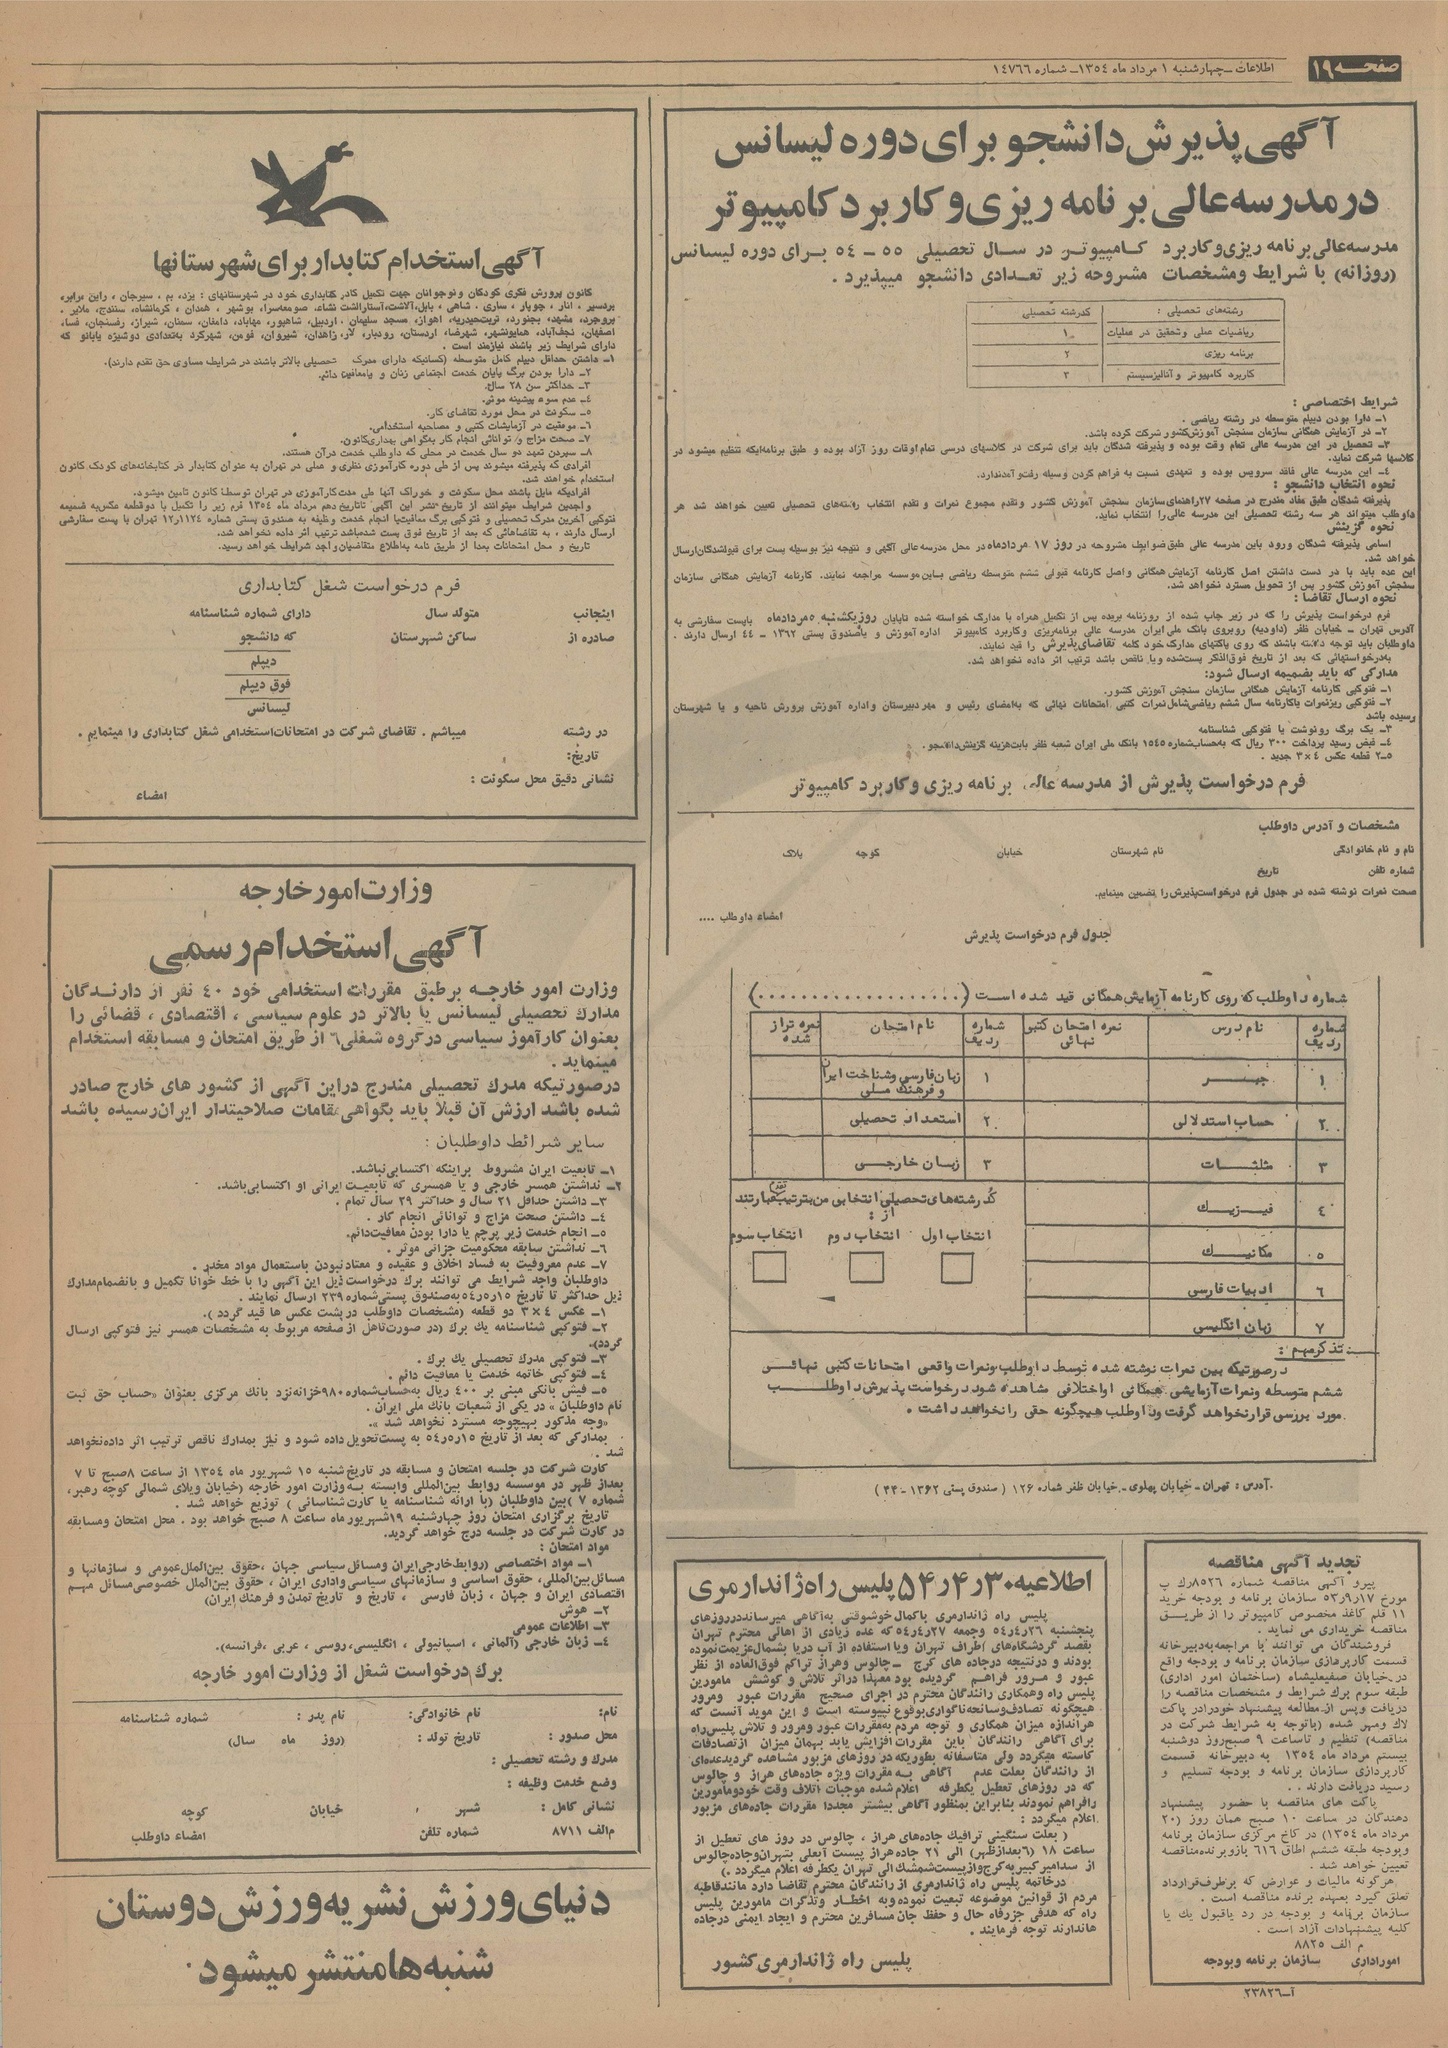 صفحه ۱۹
اطلاعات - چهارشنبه ۱ مرداد ماه ۱۳۵۴ - شماره ۱۴۷۶۶
آگهی پذیرش دانشجو برای دوره لیسانس
در مدرسه عالی برنامه ریزی و کاربرد کامپیوتر
مدرسه عالی برنامه ریزی و کاربرد کامپیوتر در سال تحصیلی ۵۵ - ۵۴ برای دوره لیسانس
(روزانه) با شرایط و مشخصات مشروحه زیر تعدادی دانشجو میپذیرد .
رشته‌های تحصیلی : کد رشته تحصیلی :
ریاضیات عملی و تحقیق در عملیات ۱
برنامه ریزی ۲
کاربرد کامپیوتر و آنالیز سیستم ۳
شرایط اختصاصی :
۱- دارا بودن دیپلم متوسطه در رشته ریاضی .
۲- در آزمایش همگانی سازمان سنجش آموزش کشور شرکت کرده باشد.
۳- تحصیل در این مدرسه عالی تمام وقت بوده و پذیرفته شدگان باید برای شرکت در کلاسهای درسی تمام اوقات روز آزاد بوده و طبق برنامه‌ایکه تنظیم میشود در
کلاسها شرکت نماید.
۴- این مدرسه عالی فاقد سرویس بوده و تعهدی نسبت به فراهم کردن وسیله رفت و آمد ندارد.
نحوه انتخاب دانشجو :
پذیرفته شدگان طبق مفاد مندرج در صفحه ۲۷ راهنمای سازمان سنجش آموزش کشور و تقدم مجموع نمرات و تقدم انتخاب رشته‌های تحصیلی تعیین خواهند شد هر
داوطلب میتواند هر سه رشته تحصیلی این مدرسه عالی را انتخاب نماید.
نحوه گزینش
اسامی پذیرفته شدگان ورود باین مدرسه عالی طبق ضوابط مشروحه در روز ۱۷ مرداد ماه در محل مدرسه عالی آگهی و نتیجه نیز بوسیله پست برای قبولشدگان ارسال
خواهد شد.
این عده باید با در دست داشتن اصل کارنامه آزمایش همگانی و اصل کارنامه قبولی ششم متوسطه ریاضی باین موسسه مراجعه نمایند. کارنامه آزمایش همگانی سازمان
سنجش آموزش کشور پس از تحویل مسترد نخواهد شد.
نحوه ارسال تقاضا :
فرم درخواست پذیرش را که در زیر چاپ شده از روزنامه بریده پس از تکمیل همراه با مدارک خواسته شده تا پایان روز یکشنبه ۵ مرداد ماه با پست سفارشی به
آدرس تهران - خیابان ظفر (داودیه) روبروی بانک ملی ایران مدرسه عالی برنامه‌ریزی و کاربرد کامپیوتر اداره آموزش و یا صندوق پستی ۱۳۶۲ - ۴۴ ارسال دارند .
داوطلبان باید توجه داشته باشند که روی پاکتهای مدارک خود کلمه تقاضای پذیرش را قید نمایند.
به درخواستهائی که بعد از تاریخ فوق‌الذکر پست شده و یا ناقص باشد ترتیب اثر داده نخواهد شد.
مدارکی که باید بضمیمه ارسال شود:
۱- فتوکپی کارنامه آزمایش همگانی سازمان سنجش آموزش کشور.
۲- فتوکپی ریز نمرات یا کارنامه سال ششم ریاضی شامل نمرات کتبی امتحانات نهائی که به امضای رئیس و مهر دبیرستان و اداره آموزش پرورش ناحیه و یا شهرستان
رسیده باشد
۳- یک برگ رونوشت یا فتوکپی شناسنامه
۴- قبض رسید پرداخت ۳۰۰ ریال که به حساب شماره ۱۵۴۵ بانک ملی ایران شعبه ظفر بابت هزینه گزینش دانشجو.
۵- ۲ قطعه عکس ۴×۳ جدید .
فرم درخواست پذیرش از مدرسه عالی برنامه ریزی و کاربرد کامپیوتر
مشخصات و آدرس داوطلب
نام و نام خانوادگی نام شهرستان خیابان کوچه پلاک
شماره تلفن تاریخ
صحت نمرات نوشته شده در جدول فرم درخواست پذیرش را تضمین مینمایم.
امضاء داوطلب ....
جدول فرم درخواست پذیرش
شماره داوطلب که روی کارنامه آزمایش همگانی قید شده است (....................)
شماره ردیف نام درس نمره امتحان کتبی نهائی شماره ردیف نام امتحان نمره تراز شده
۱ جبر ۱ زبان فارسی و شناخت ایران و فرهنگ ملی
۲ حساب استدلالی ۲ استعداد تحصیلی
۳ مثلثات ۳ زبان خارجی
۴ فیزیک
۵ مکانیک
۶ ادبیات فارسی
۷ زبان انگلیسی
کد رشته‌های تحصیلی انتخابی من بترتیب تقدم عبارتند
از :
انتخاب اول انتخاب دوم انتخاب سوم
تذکر مهم :
در صورتیکه بین نمرات نوشته شده توسط داوطلب و نمرات واقعی امتحانات کتبی نهائی
ششم متوسطه و نمرات آزمایشی همگانی او اختلافی مشاهده شود درخواست پذیرش داوطلب
مورد بررسی قرار نخواهد گرفت و داوطلب هیچگونه حقی را نخواهد داشت .
آدرس : تهران - خیابان پهلوی - خیابان ظفر شماره ۱۲۶ ( صندوق پستی ۱۳۶۲ - ۴۴ )
تجدید آگهی مناقصه
پیرو آگهی مناقصه شماره ۸۵۲۶ر ک ب
مورخ ۵۳ر۹ر۱۷ سازمان برنامه و بودجه خرید
۱۱ قلم کاغذ مخصوص کامپیوتر را از طریق
مناقصه خریداری می نماید .
فروشندگان می توانند با مراجعه به دبیرخانه
قسمت کارپردازی سازمان برنامه و بودجه واقع
در خیابان صفیعلیشاه (ساختمان امور اداری)
طبقه سوم برگ شرایط و مشخصات مناقصه را
دریافت و پس از مطالعه پیشنهاد خود را در پاکت
لاک و مهر شده (با توجه به شرایط شرکت در
مناقصه) تنظیم و تا ساعت ۹ صبح روز دوشنبه
بیستم مرداد ماه ۱۳۵۴ به دبیرخانه قسمت
کارپردازی سازمان برنامه و بودجه تسلیم و
رسید دریافت دارند .
پاکت های مناقصه با حضور پیشنهاد
دهندگان در ساعت ۱۰ صبح همان روز (۲۰
مرداد ماه ۱۳۵۴) در کاخ مرکزی سازمان برنامه
و بودجه طبقه ششم اطاق ۶۱۶ باز و برنده مناقصه
تعیین خواهد شد .
هرگونه مالیات و عوارض که بر طرف قرارداد
تعلق گیرد بعهده برنده مناقصه است .
سازمان برنامه و بودجه در رد یا قبول یک یا
کلیه پیشنهادات آزاد است .
م الف ۸۸۲۵
امور اداری سازمان برنامه و بودجه
آ-۲۳۸۲۶
اطلاعیه ۳۰ر۴ر۵۴ پلیس راه ژاندارمری
پلیس راه ژاندارمری با کمال خوشوقتی به آگاهی میرساند در روزهای
پنجشنبه ۵۴ر۴ر۲۶ و جمعه ۵۴ر۴ر۲۷ که عده زیادی از اهالی محترم تهران
بقصد گردشگاه‌های اطراف تهران و یا استفاده از آب دریا بشمال عزیمت نموده
بودند و در نتیجه در جاده های کرج - چالوس و هراز تراکم فوق‌العاده از نظر
عبور و مرور فراهم گردیده بود معهذا در اثر تلاش و کوشش مامورین
پلیس راه و همکاری رانندگان محترم در اجرای صحیح مقررات عبور و مرور
هیچگونه تصادف و سانحه ناگواری بوقوع نپیوسته است و این موید آنست که
هر اندازه میزان همکاری و توجه مردم به مقررات عبور و مرور و تلاش پلیس راه
برای آگاهی رانندگان باین مقررات افزایش یابد بهمان میزان از تصادفات
کاسته میگردد ولی متاسفانه بطوریکه در روزهای مزبور مشاهده گردید عده‌ای
از رانندگان بعلت عدم آگاهی به مقررات ویژه جاده‌های هراز و چالوس
که در روزهای تعطیل یکطرفه اعلام شده موجبات اتلاف وقت خود و مامورین
را فراهم نمودند بنابراین بمنظور آگاهی بیشتر مجددا مقررات جاده‌های مزبور
اعلام میگردد :
( بعلت سنگینی ترافیک جاده‌های هراز ، چالوس در روز های تعطیل از
ساعت ۱۸ (۶ بعد از ظهر) الی ۲۱ جاده هراز پیست آبعلی بتهران و جاده چالوس
از سد امیر کبیر به کرج و از پیست شمشک الی تهران یکطرفه اعلام میگردد .)
در خاتمه پلیس راه ژاندارمری از رانندگان محترم تقاضا دارد مانند قاطبه
مردم از قوانین موضوعه تبعیت نموده و به اخطار و تذکرات مامورین پلیس
راه که هدفی جز رفاه حال و حفظ جان مسافرین محترم و ایجاد ایمنی در جاده
ها ندارند توجه فرمایند .
پلیس راه ژاندارمری کشور
آگهی استخدام کتابدار برای شهرستانها
کانون پرورش فکری کودکان و نوجوانان جهت تکمیل کادر کتابداری خود در شهرستانهای : یزد، بم ، سیرجان ، راین برابر،
بردسیر ، انار ، جوپار ، ساری ، شاهی ، بابل، آلاشت، آستارا، صومعه‌سرا، بوشهر ، همدان ، کرمانشاه، سنندج، ملایر .
بروجرد، مشهد، بجنورد، تربت‌حیدریه، اهواز، مسجد سلیمان ، اردبیل، شاهپور، مهاباد، دامغان، سمنان، شیراز، رفسنجان، فسا،
اصفهان، نجف‌آباد، همایونشهر، شهرضا، اردستان، رودبار، لار، زاهدان، شیروان، فومن، شهرکرد به تعدادی دوشیزه یا بانو که
دارای شرایط زیر باشند نیازمند است .
۱- داشتن حداقل دیپلم کامل متوسطه (کسانیکه دارای مدرک تحصیلی بالاتر باشند در شرایط مساوی حق تقدم دارند).
۲- دارا بودن برگ پایان خدمت اجتماعی زنان و یا معافیت دائم.
۳- حداکثر سن ۲۸ سال.
۴- عدم سوء پیشینه موثر.
۵- سکونت در محل مورد تقاضای کار.
۶- موفقیت در آزمایشات کتبی و مصاحبه استخدامی.
۷- صحت مزاج و توانائی انجام کار به گواهی بهداری کانون.
۸- سپردن تعهد دو سال خدمت در محلی که داوطلب خدمت در آن هستند.
افرادی که پذیرفته میشوند پس از طی دوره کارآموزی نظری و عملی در تهران به عنوان کتابدار در کتابخانه‌های کودک کانون
استخدام خواهند شد.
افرادیکه مایل باشند محل سکونت و خوراک آنها طی مدت کارآموزی در تهران توسط کانون تامین میشود.
واجدین شرایط میتوانند از تاریخ نشر این آگهی تا تاریخ دهم مرداد ماه ۱۳۵۴ فرم زیر را تکمیل با دو قطعه عکس به ضمیمه
فتوکپی آخرین مدرک تحصیلی و فتوکپی برگ معافیت یا انجام خدمت وظیفه به صندوق پستی شماره ۱۱۲۴ر۱۲ تهران با پست سفارشی
ارسال دارند ، به تقاضاهائی که بعد از تاریخ فوق پست شده باشد ترتیب اثر داده نخواهد شد.
تاریخ و محل امتحانات بعدا از طریق نامه به اطلاع متقاضیان واجد شرایط خواهد رسید.
فرم درخواست شغل کتابداری
اینجانب متولد سال دارای شماره شناسنامه
صادره از ساکن شهرستان که دانشجو
دیپلم
فوق دیپلم
لیسانس
در رشته میباشم . تقاضای شرکت در امتحانات استخدامی شغل کتابداری را مینمایم .
تاریخ:
نشانی دقیق محل سکونت :
امضاء
وزارت امور خارجه
آگهی استخدام رسمی
وزارت امور خارجه بر طبق مقررات استخدامی خود ۴۰ نفر از دارندگان
مدارک تحصیلی لیسانس یا بالاتر در علوم سیاسی ، اقتصادی ، قضائی را
بعنوان کارآموز سیاسی در گروه شغلی ۶ از طریق امتحان و مسابقه استخدام
مینماید .
در صورتیکه مدرک تحصیلی مندرج در این آگهی از کشور های خارج صادر
شده باشد ارزش آن قبلا باید بگواهی مقامات صلاحیتدار ایران رسیده باشد
سایر شرائط داوطلبان :
۱- تابعیت ایران مشروط براینکه اکتسابی نباشد.
۲- نداشتن همسر خارجی و یا همسری که تابعیت ایرانی او اکتسابی باشد.
۳- داشتن حداقل ۲۱ سال و حداکثر ۲۹ سال تمام .
۴- داشتن صحت مزاج و توانائی انجام کار .
۵- انجام خدمت زیر پرچم یا دارا بودن معافیت دائم.
۶- نداشتن سابقه محکومیت جزائی موثر .
۷- عدم معروفیت به فساد اخلاق و عقیده و معتاد نبودن باستعمال مواد مخدر .
داوطلبان واجد شرایط می توانند برگ درخواست ذیل این آگهی را با خط خوانا تکمیل و بانضمام مدارک
ذیل حداکثر تا تاریخ ۵۴ر۵ر۱۵ به صندوق پستی شماره ۲۳۹ ارسال نمایند .
۱- عکس ۴×۳ دو قطعه (مشخصات داوطلب در پشت عکس ها قید گردد ).
۲- فتوکپی شناسنامه یک برگ (در صورت تاهل از صفحه مربوط به مشخصات همسر نیز فتوکپی ارسال
گردد).
۳- فتوکپی مدرک تحصیلی یک برگ .
۴- فتوکپی خاتمه خدمت یا معافیت دائم .
۵- فیش بانکی مبنی بر ۴۰۰ ریال به حساب شماره ۹۸۰ خزانه نزد بانک مرکزی بعنوان «حساب حق ثبت
نام داوطلبان » در یکی از شعبات بانک ملی ایران .
«وجه مذکور بهیچوجه مسترد نخواهد شد ».
بمدارکی که بعد از تاریخ ۵۴ر۵ر۱۵ به پست تحویل داده شود و نیز بمدارک ناقص ترتیب اثر داده نخواهد
شد .
کارت شرکت در جلسه امتحان و مسابقه در تاریخ شنبه ۱۵ شهریور ماه ۱۳۵۴ از ساعت ۸ صبح تا ۷
بعد از ظهر در موسسه روابط بین‌المللی وابسته به وزارت امور خارجه (خیابان ویلای شمالی کوچه رهبر،
شماره ۷ )بین داوطلبان (با ارائه شناسنامه یا کارت شناسائی ) توزیع خواهد شد .
تاریخ برگزاری امتحان روز چهارشنبه ۱۹ شهریور ماه ساعت ۸ صبح خواهد بود . محل امتحان و مسابقه
در کارت شرکت در جلسه درج خواهد گردید.
مواد امتحان :
۱- مواد اختصاصی (روابط خارجی ایران و مسائل سیاسی جهان ،حقوق بین‌الملل عمومی و سازمانها و
مسائل بین‌المللی، حقوق اساسی و سازمانهای سیاسی و اداری ایران ، حقوق بین‌الملل خصوصی مسائل مهم
اقتصادی ایران و جهان ، زبان فارسی ، تاریخ و تاریخ تمدن و فرهنگ ایران)
۲- هوش
۳- اطلاعات عمومی
۴- زبان خارجی (آلمانی ، اسپانیولی ، انگلیسی، روسی ، عربی ،فرانسه).
برگ درخواست شغل از وزارت امور خارجه
نام: نام خانوادگی: نام پدر : شماره شناسنامه
محل صدور : تاریخ تولد : (روز ماه سال)
مدرک و رشته تحصیلی :
وضع خدمت وظیفه :
نشانی کامل : شهر خیابان کوچه
م الف ۸۷۱۱ شماره تلفن امضاء داوطلب
دنیای ورزش نشریه ورزش دوستان
شنبه ها منتشر میشود .